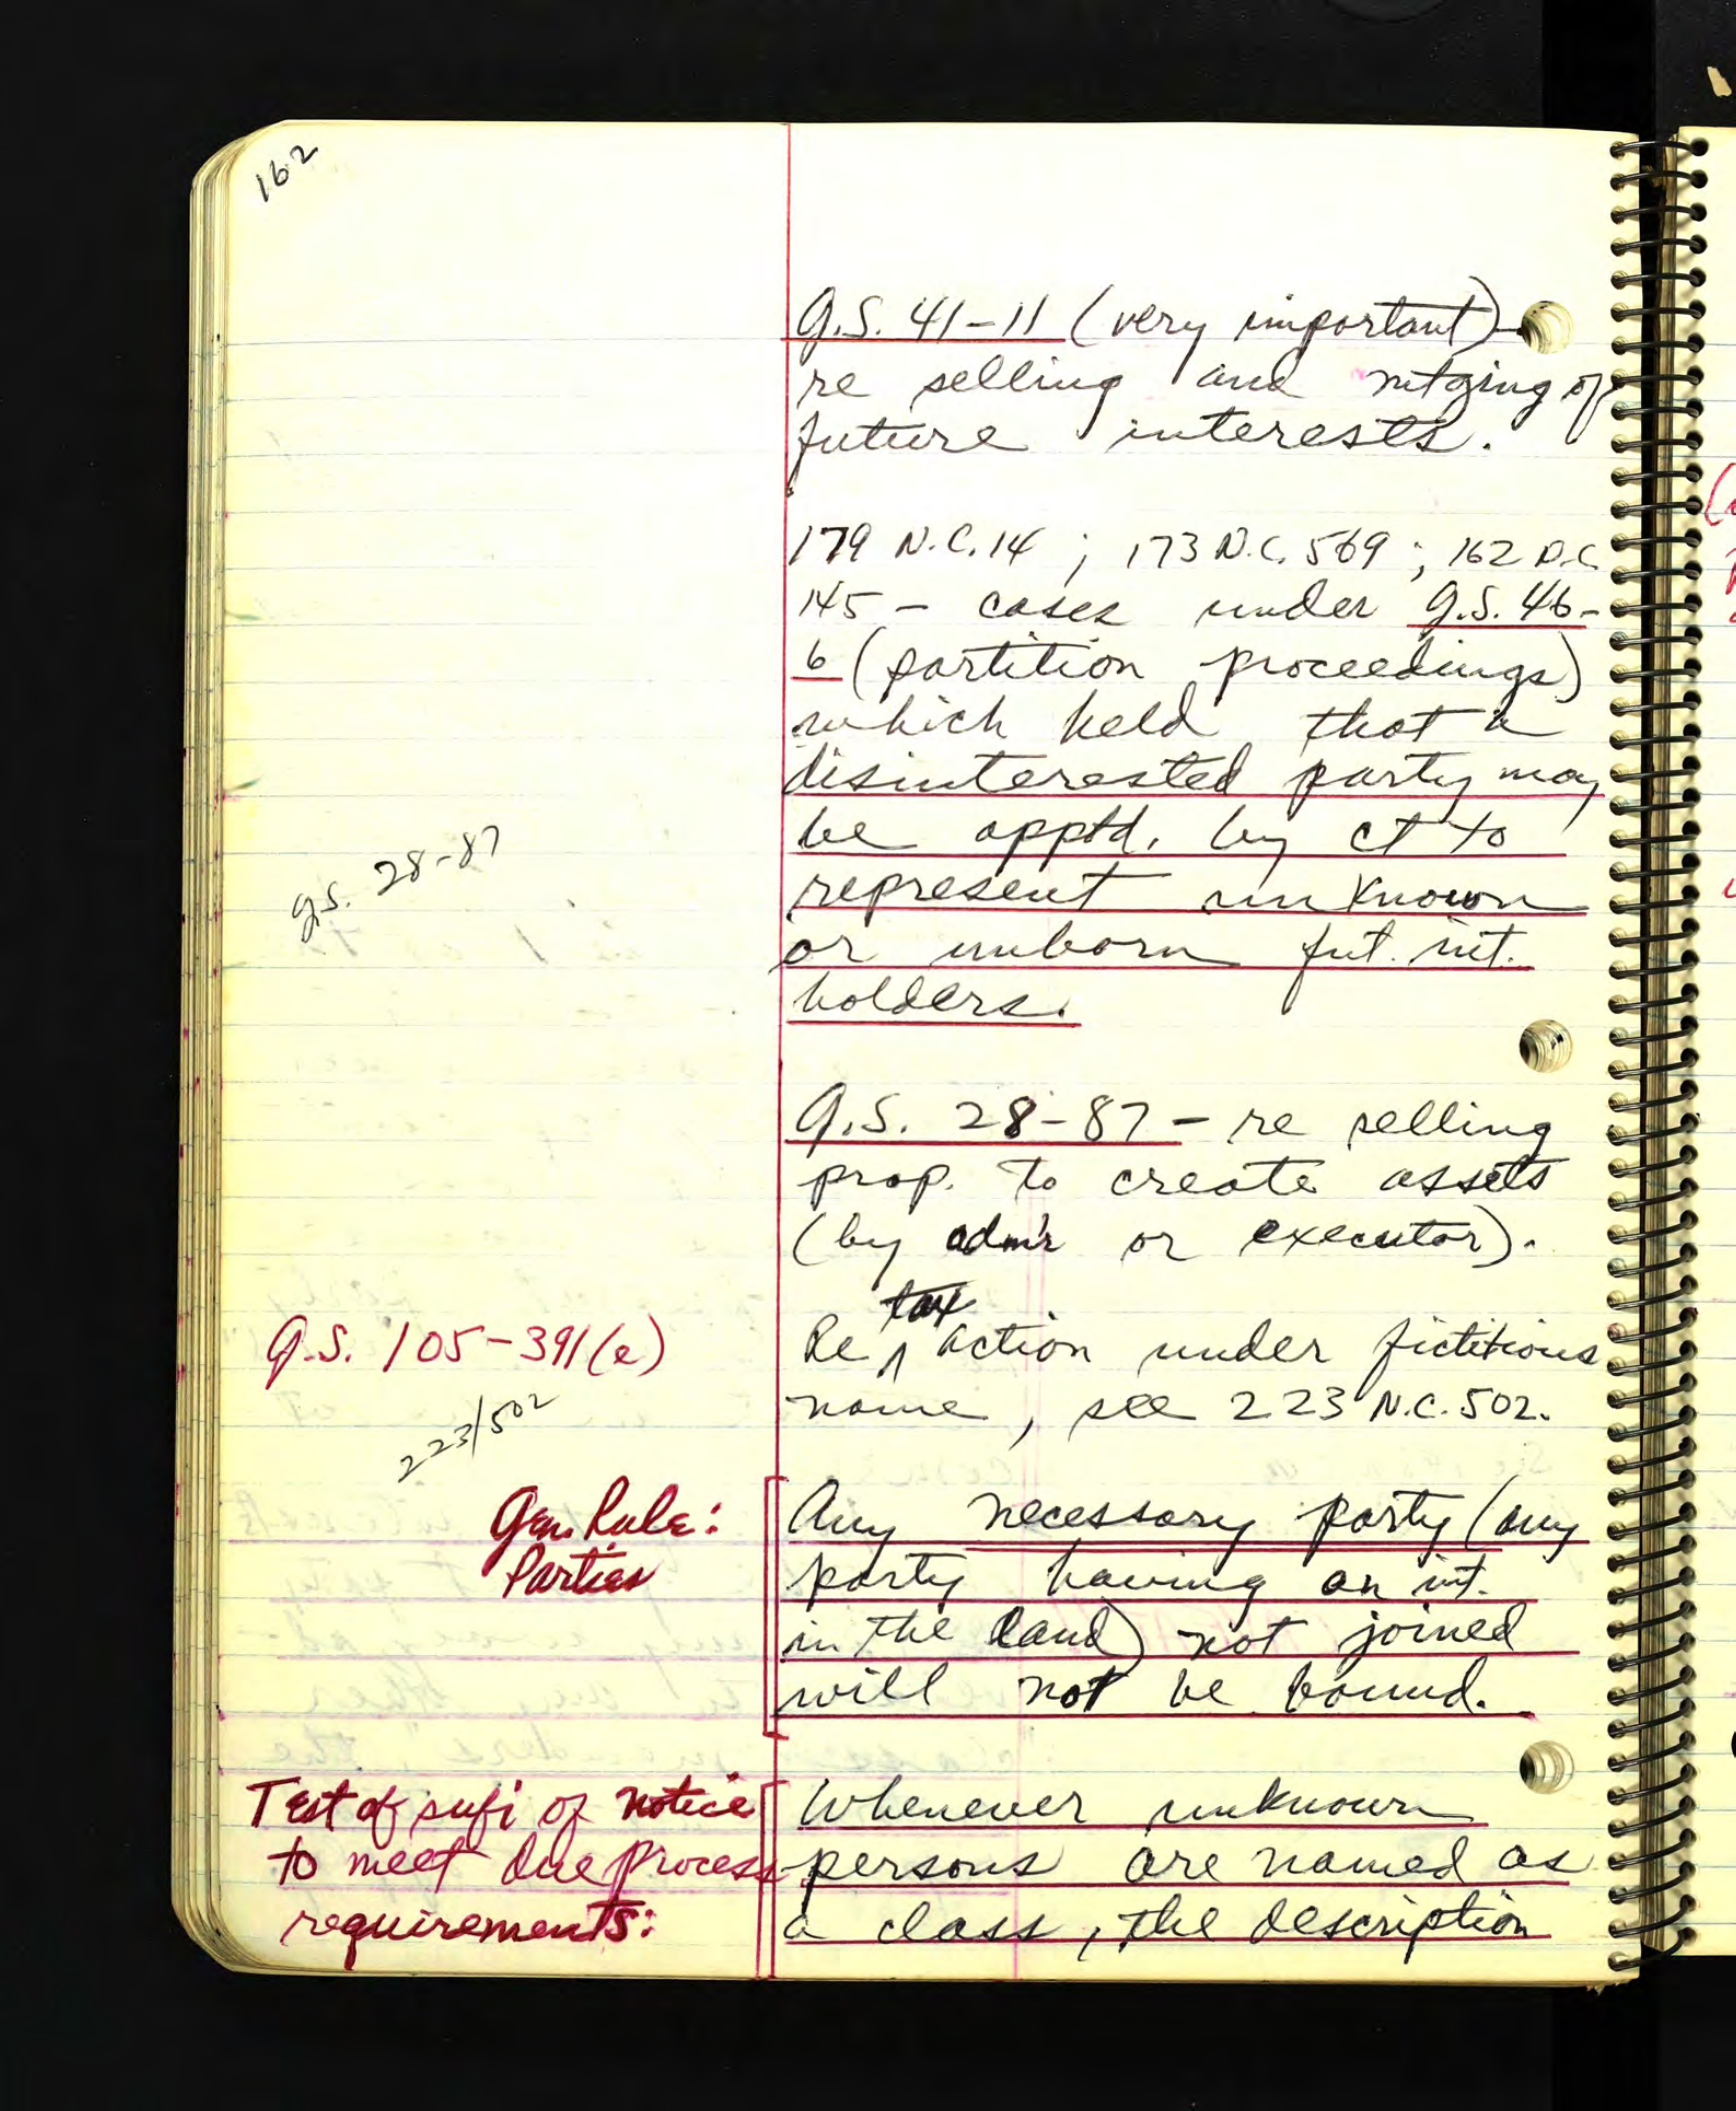 162
G.S. 41-11 (very important)
re selling and mtging of
future interests.
179 N.C. 14 ; 173 N.C. 569 ; 162 N.C.
145 - cases under G.S. 46-
6 (partition proceedings)
which held that a
disinterested party may
be apptd. by ct to
represent unknown
or unborn fut. int.
holders.
G.S. 28-87
G.S. 28-87 - re selling
prop. to create assets
(by adm'r or executor).
tax
G.S. 105-391(e)
Re ^ action under fictitious
name, see 223 N.C. 502.
223/502
Gen. Rule:
Parties
Any necessary party (any
party having an int.
in the land) not joined
will not be bound.
Test of sufi of notice
to meet due process
requirements:
Whenever unknown
persons are named as
a class, the description